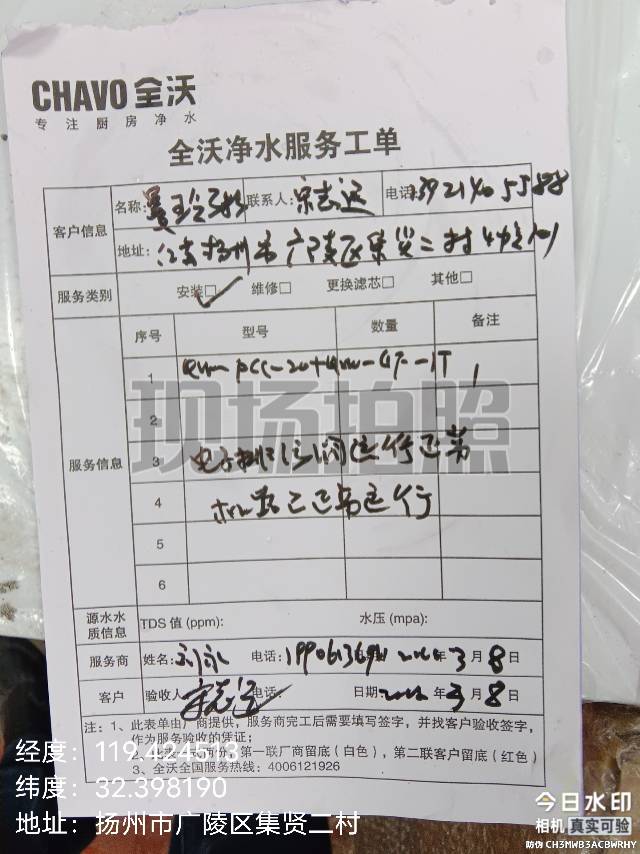 CHAVO 全沃
专注厨房净水
全沃净水服务工单
客户信息
名称: 联系人: 宋志远 电话:
地址: 江苏扬州市广陵区集贤二村
服务类别 安装☑ 维修□ 更换滤芯□ 其他□
服务信息
序号 型号 数量 备注
1 1
2
现场拍照
3 运行正常
4 机器已正常运行
5
6
源水水质信息 TDS 值 (ppm): 水压 (mpa):
服务商 姓名: 刘永 电话: 3月8日
客户 验收人 宋志远 电话: 日期: 3月8日
注: 1、此表单由厂商提供，服务商完工后需要填写签字，并找客户验收签字，
作为服务验收的凭证;
第一联厂商留底（白色），第二联客户留底（红色）
3、全沃全国服务热线: 4006121926
经度: 119.424513
纬度: 32.398190
地址: 扬州市广陵区集贤二村
今日水印
相机 真实可验
防伪 CH3MWB3ACBWRHY